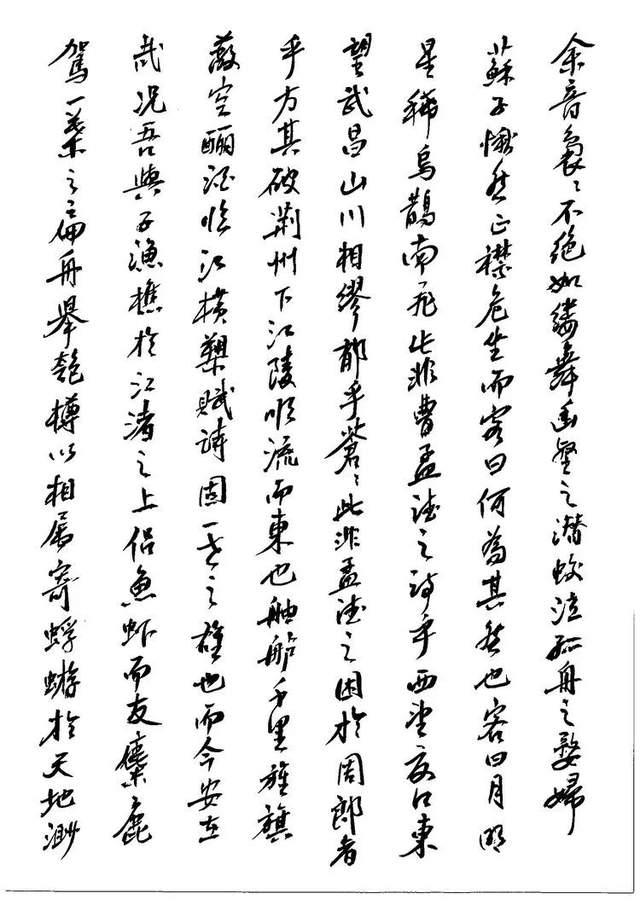 余音裊〻不絕如縷舞幽壑之潛蛟泣孤舟之嫠婦
蘇子愀然正襟危坐而客曰何為其然也客曰月明
星稀烏鵲南飛此非曹孟德之詩乎西望夏口東
望武昌山川相繆郁乎蒼〻此非孟德之困於周郎者
乎方其破荊州下江陵順流而東也舳舻千里旌旗
蔽空酾酒臨江橫槊賦詩固一世之雄也而今安在
哉况吾與子漁樵於江渚之上侶魚虾而友麋鹿
駕一葉之扁舟舉匏樽以相属寄蜉蝣於天地渺